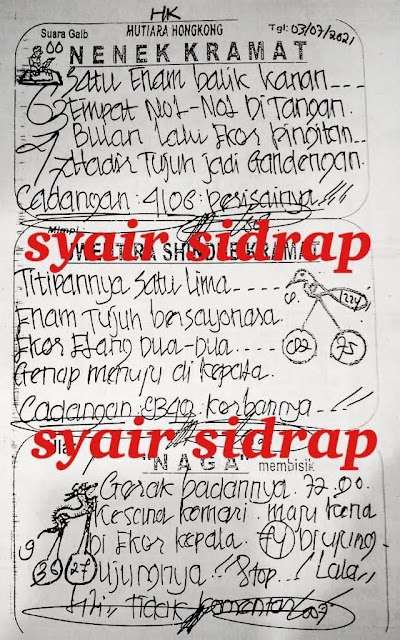 HK
Suara Gaib MUTIARA HONGKONG Tgl: 03/07/2021
00 NENEK KRAMAT
Satu Enam balik kanan
Empat No1-No1 Di Tangan.
Bulan lalu Ekor pingitan
Hadir Tujuh jadi Gandengan.
Cadangan: 4106: berisainya
Mimpi
syair sidrap
KRAMAT
Titipannya Satu Lima
Enam Tujuh bersayonara.
Ekor Elang Dua-Dua
Genap menuju di kepala.
CD2 75
Cadangan: korbannya
syair sidrap
"NAGA" membisik
Gerak badannya. 72.00.
Kesana kemari. maju kena
Di Ekor kepala. Diujung
9 39 27
ujungnya Stop Lala
Tidak komentar